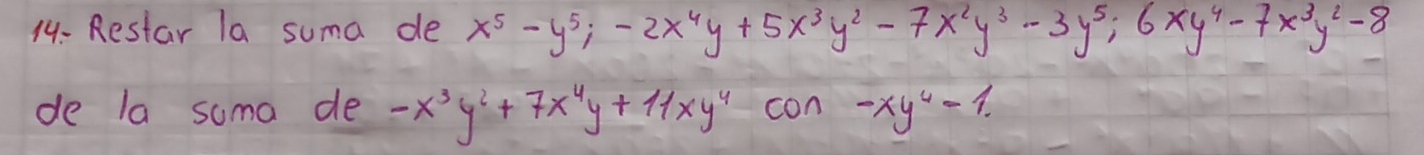 14.- Restar la suma de x⁵ - y⁵; -2x⁴y + 5x³y² - 7x²y³ - 3y⁵; 6xy⁴ - 7x³y² - 8
de la suma de -x³y² + 7x⁴y + 11xy⁴ con -xy⁴ - 1.